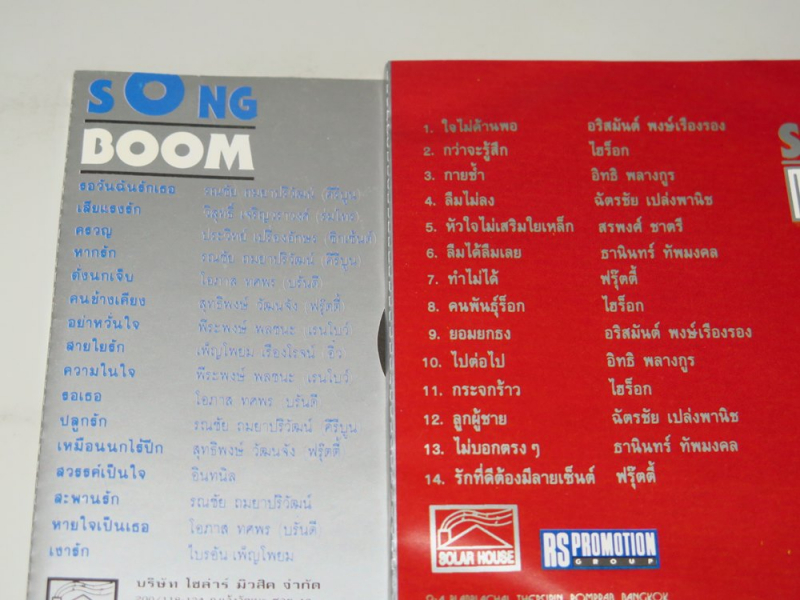 SONG
BOOM
รอวันฉันรักเธอ รณชัย ถมยาปริวัฒน์ (คีรีบูน)
เสียแรงรัก
ครวญ
หากรัก รณชัย ถมยาปริวัฒน์ (คีรีบูน)
ดั่งนกเจ็บ โอภาส ทศพร (บรั่นดี)
คนข้างเคียง สุทธิพงษ์ วัฒนจัง (ฟรุ๊ตตี้)
อย่าหวั่นใจ พีระพงษ์ พลชนะ (เรนโบว์)
สายใยรัก เพ็ญโพยม เรืองโรจน์
ความในใจ พีระพงษ์ พลชนะ (เรนโบว์)
รอเธอ โอภาส ทศพร (บรั่นดี)
ปลูกรัก รณชัย ถมยาปริวัฒน์ (คีรีบูน)
เหมือนนกไร้ปีก สุทธิพงษ์ วัฒนจัง (ฟรุ๊ตตี้)
สวรรค์เป็นใจ อินทนิล
สะพานรัก รณชัย ถมยาปริวัฒน์
หายใจเป็นเธอ โอภาส ทศพร (บรั่นดี)
เงารัก ไบรอัน เพ็ญโพยม
บริษัท โซล่าร์ มิวสิค จำกัด
1. ใจไม่ด้านพอ อริสมันต์ พงษ์เรืองรอง
2. กว่าจะรู้สึก ไฮร็อก
3. กายช้ำ อิทธิ พลางกูร
4. ลืมไม่ลง ฉัตรชัย เปล่งพานิช
5. หัวใจไม่เสริมใยเหล็ก สรพงศ์ ชาตรี
6. ลืมได้ลืมเลย ธานินทร์ ทัพมงคล
7. ทำไม่ได้ ฟรุ๊ตตี้
8. คนพันธุ์ร็อก ไฮร็อก
9. ยอมยกธง อริสมันต์ พงษ์เรืองรอง
10. ไปต่อไป อิทธิ พลางกูร
11. กระจกร้าว ไฮร็อก
12. ลูกผู้ชาย ฉัตรชัย เปล่งพานิช
13. ไม่บอกตรง ๆ ธานินทร์ ทัพมงคล
14. รักที่ดีต้องมีลายเซ็นต์ ฟรุ๊ตตี้
SOLAR HOUSE
RS PROMOTION
GROUP